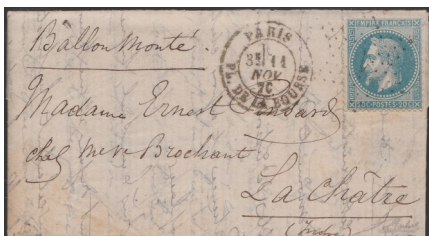 Ballon Monté.
PARIS
3E 11
NOV
70
PL. DE LA BOURSE
EMPIRE FRANÇAIS
20 C POSTES 20 C
Madame Ernest
chez Mme Brochant
La Châtre
(Indre)